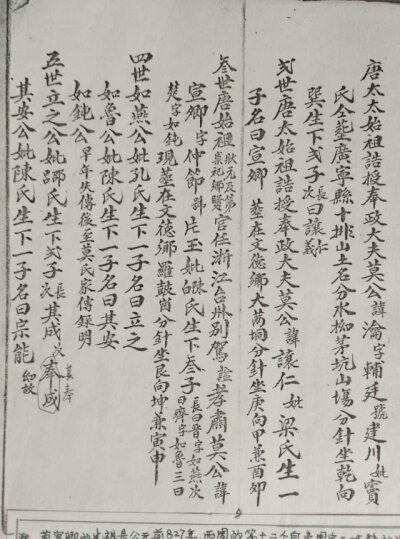 唐太太始祖誥授奉政大夫莫公諱瀹字輔廷號建川妣竇
氏仝塟廣寧縣十排山土名分水坳茅坑山塲分針坐乾向
巽生下弍子長曰讓仁次曰讓義
弍世唐太始祖誥授奉政大夫莫公諱讓仁妣梁氏生一
子名曰宣卿 塟在文德鄉大萬垌分針坐庚向甲兼酉卯
叁世唐始祖狀元及第崇祀鄉賢官任浙江台州別駕諡孝肅莫公諱
宣卿字仲節號片玉妣陳氏生下叁子長曰晋字如燕次曰齊字如魯三曰
楚字如鈍現塟在文德鄉羅鼓崗分針坐艮向坤兼寅申
四世如燕公妣孔氏生下一子名曰立之
如魯公妣陳氏生下一子名曰其安
如鈍公早年失傳後至莫氏家傳錄明
五世立之公妣邵氏生下弍子長其成次奉成 其奉
其安公妣陳氏生下一子名曰宗能幼故